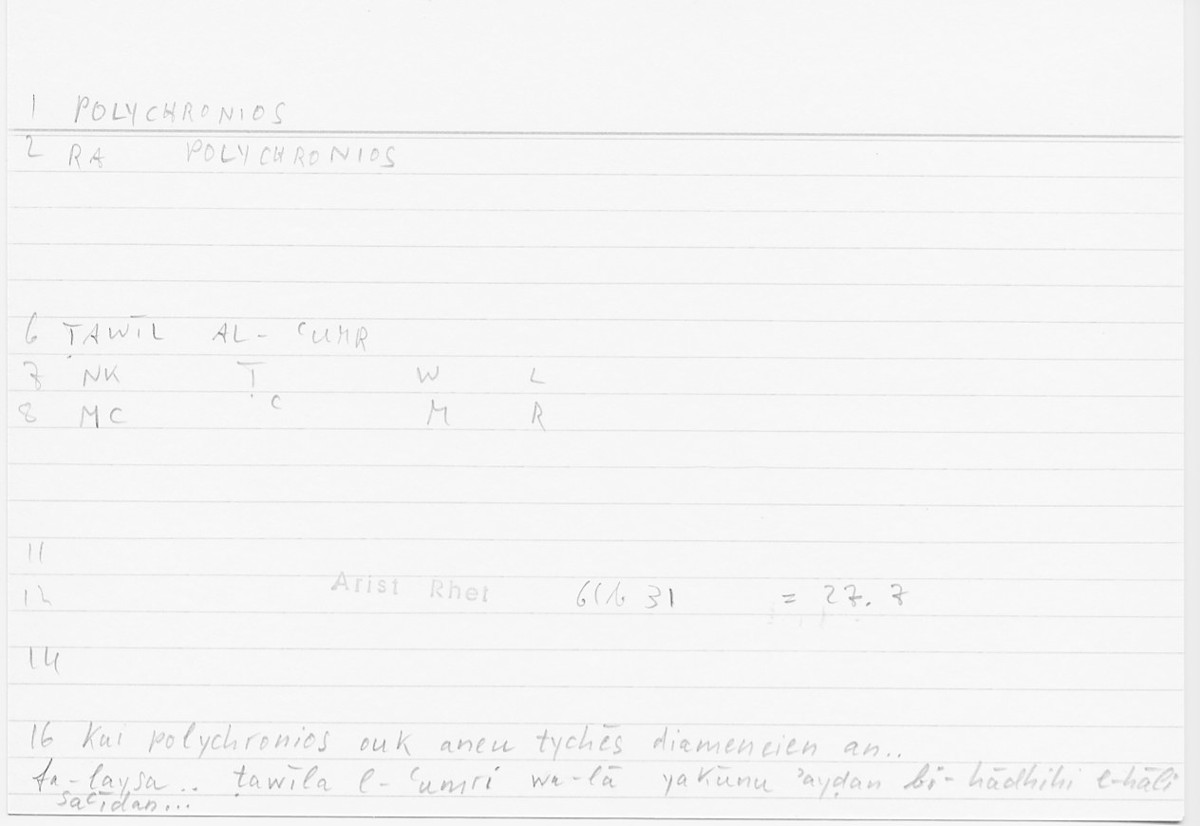 1 POLYCHRONIOS
2 RA POLYCHRONIOS
6 ṬAWĪL AL-ʿUMR
7 NK Ṭ W L
8 MC ʿ M R
11
12 Arist Rhet 61b 31 = 27. 7
14
16 Kai polychronios ouk aneu tychēs diameneien an..
fa-laysa.. ṭawīla l-ʿumri wa-lā yakūnu ʾayḍan bi-hādhihi l-ḥāli
saʿīdan...